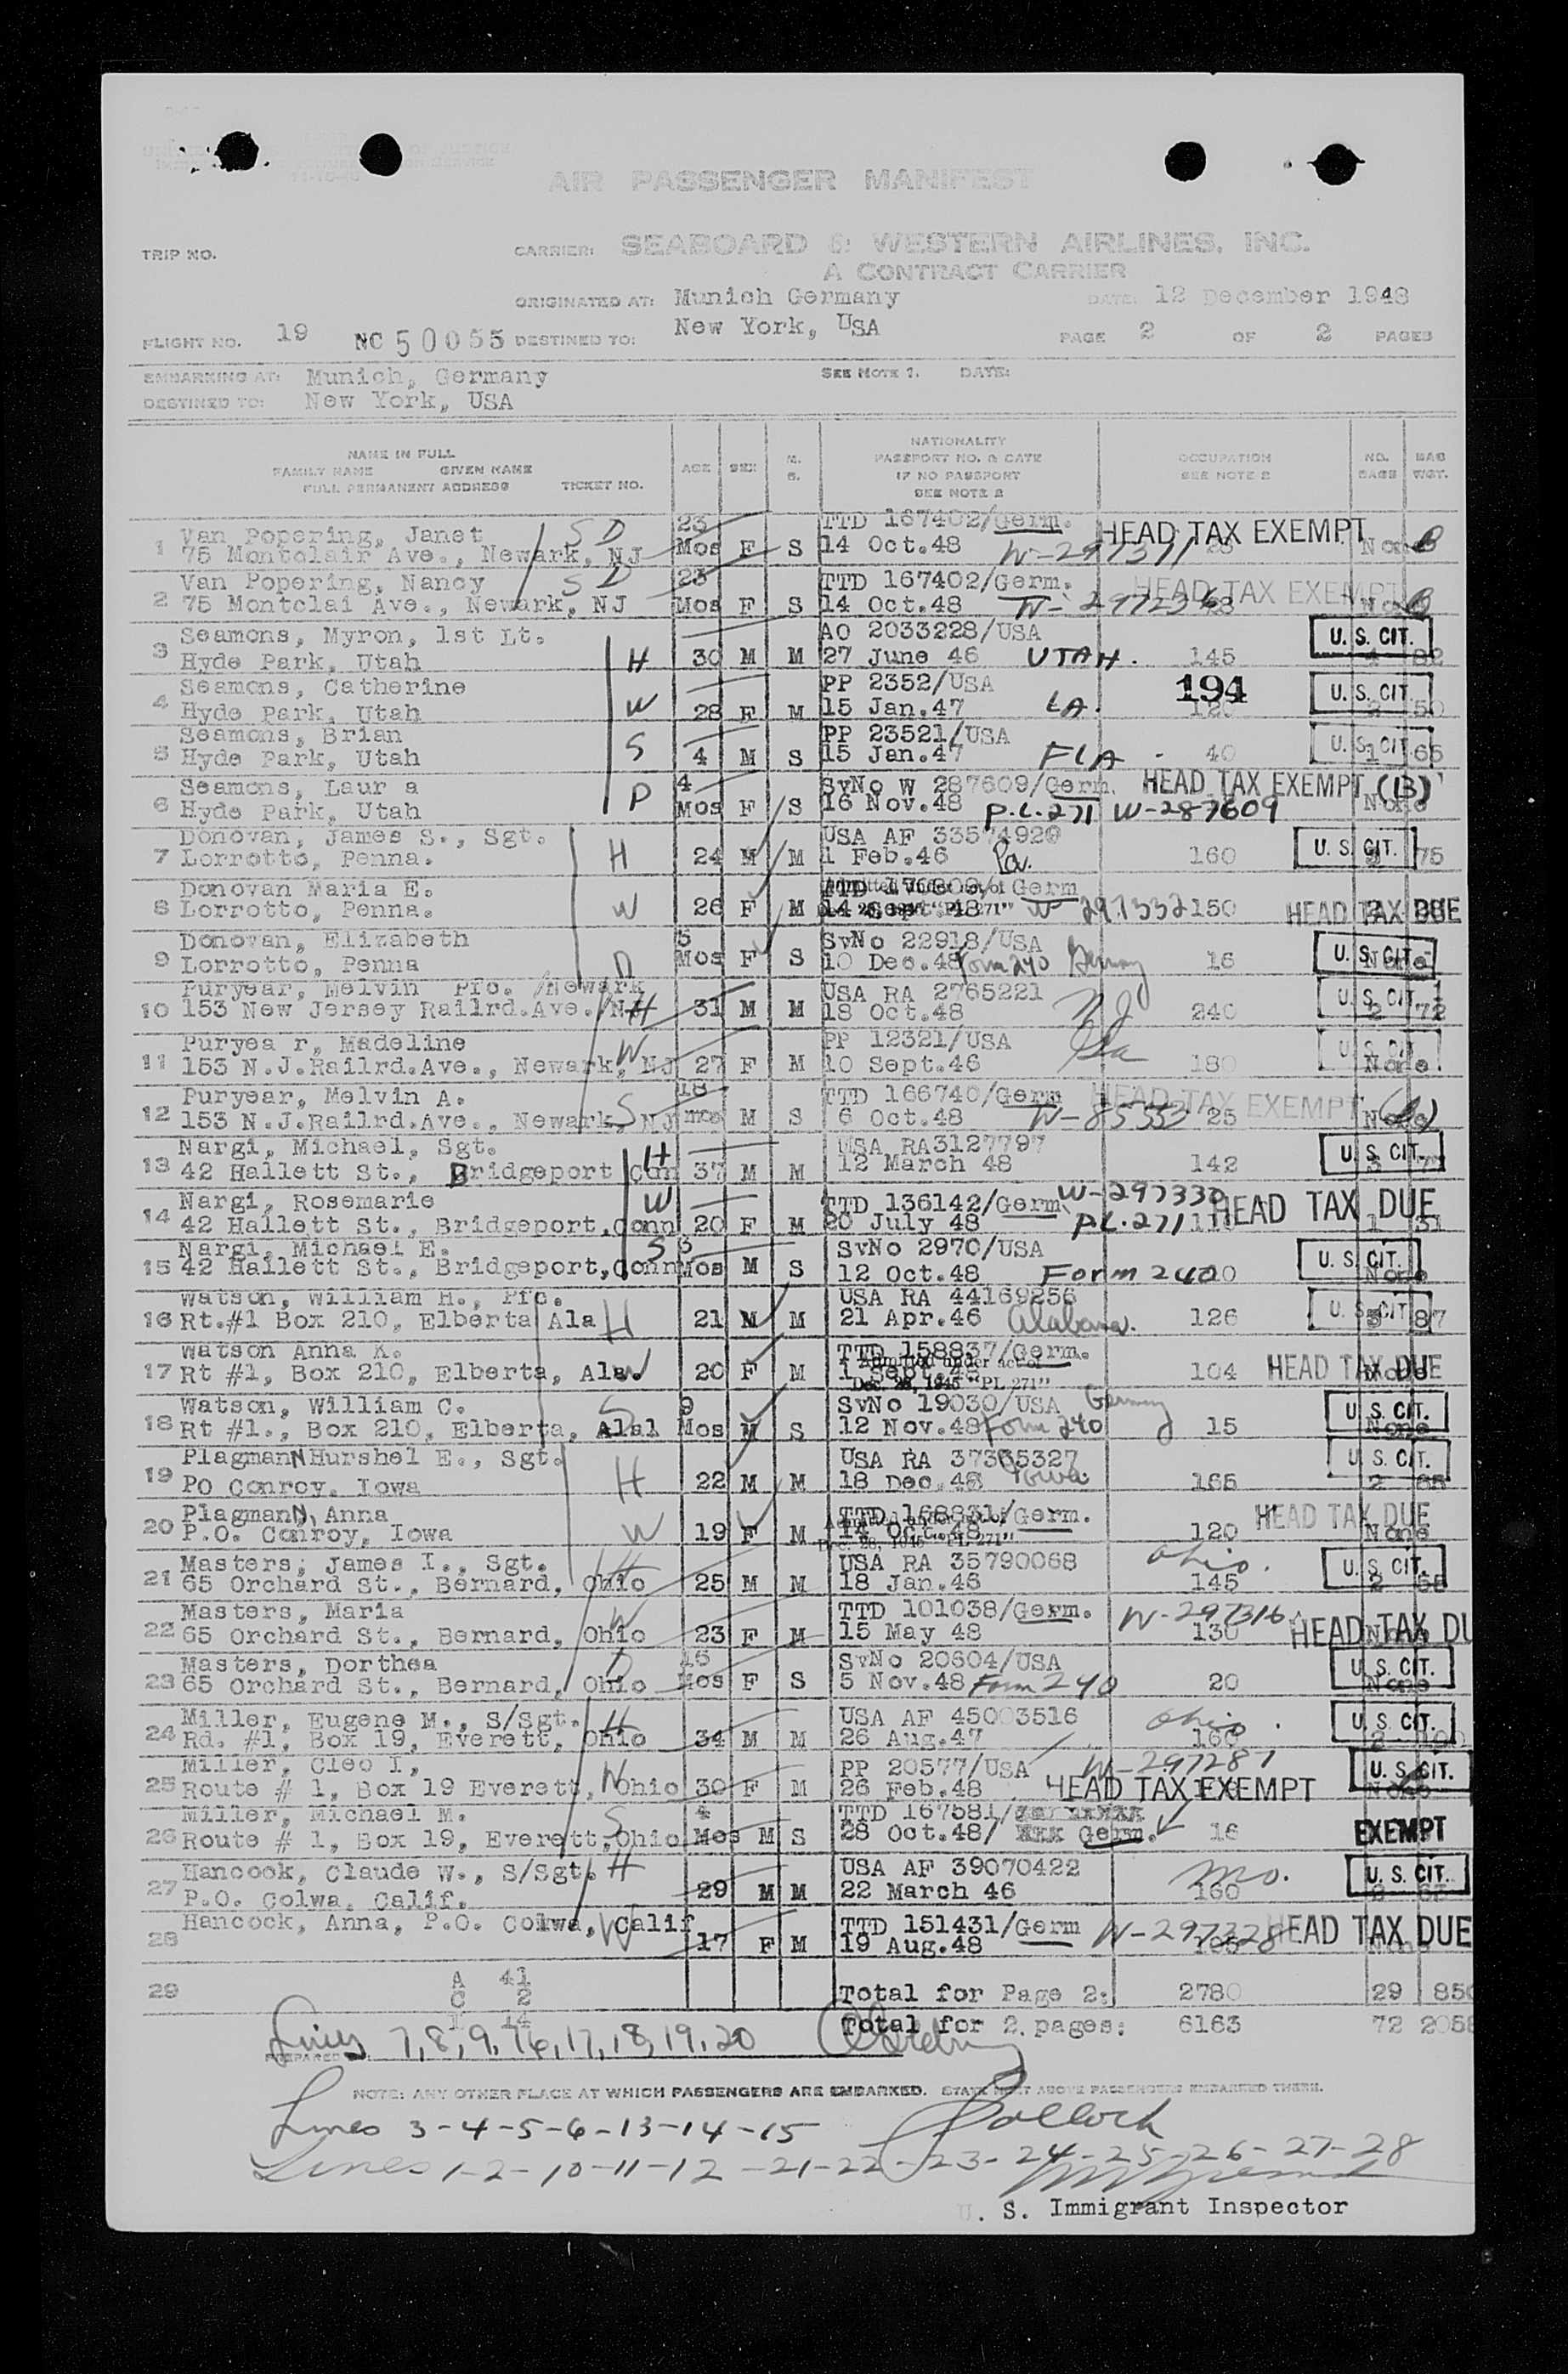 AIR PASSENGER MANIFEST
TRIP NO. CARRIER: SEABOARD & WESTERN AIRLINES, INC.
A CONTRACT CARRIER
ORIGINATED AT: Munich Germany DATE: 12 December 1948
FLIGHT NO. 19 NC 50055 DESTINED TO: New York, USA PAGE 2 OF 2 PAGES
EMBARKING AT: Munich, Germany SEE NOTE 1. DATE:
DESTINED TO: New York, USA
NAME IN FULL
FAMILY NAME GIVEN NAME
FULL PERMANENT ADDRESS TICKET NO.
AGE SEX M. S.
NATIONALITY
PASSPORT NO. & DATE
IF NO PASSPORT
SEE NOTE 2
OCCUPATION
SEE NOTE 2
NO. BAGS BAG WGT.
1 Van Popering, Janet S D 23 TTD 167402/Germ. HEAD TAX EXEMPT
75 Montclair Ave., Newark, NJ Mos F S 14 Oct.48 W-297311 None
2 Van Popering, Nancy S D 23 TTD 167402/Germ. HEAD TAX EXEMPT
75 Montclai Ave., Newark, NJ Mos F S 14 Oct.48
3 Seamons, Myron, 1st Lt. AO 2033228/USA U. S. CIT.
Hyde Park, Utah H 30 M M 27 June 46 UTAH. 145 82
4 Seamons, Catherine PP 2352/USA 194 U. S. CIT.
Hyde Park, Utah W 28 F M 15 Jan.47 LA. 120 2 50
5 Seamons, Brian PP 23521/USA U. S. CIT.
Hyde Park, Utah S 4 M S 15 Jan.47 FLA - 40 1 65
6 Seamons, Laur a 4 SvNo W 287609/Germ. HEAD TAX EXEMPT (13)
Hyde Park, Utah D Mos F S 16 Nov.48 P.L.271 W-287609 None
7 Donovan, James S., Sgt. USA AF 33574920 U. S. CIT.
Lorrotto, Penna. H 24 M M 1 Feb.46 Pa. 160 75
8 Donovan Maria E. Germ
Lorrotto, Penna. W 26 F M 14 Sept.48 W 297332 150 HEAD TAX DUE
9 Donovan, Elizabeth 5 SvNo 22918/USA U. S. CIT.
Lorrotto, Penna D Mos F S 10 Dec.48 Form 240 Germany 16 None
10 Puryear, Melvin Pfc. /Newark USA RA 2765221 U. S. CIT.
153 New Jersey Railrd.Ave./NJ H 31 M M 18 Oct.48 NJ 240 2 72
11 Puryea r, Madeline W PP 12321/USA U. S. CIT.
153 N.J.Railrd.Ave., Newark, NJ 27 F M 10 Sept.46 Ga 180 None
12 Puryear, Melvin A. 18 TTD 166740/Germ HEAD TAX EXEMPT
153 N.J.Railrd.Ave., Newark, NJ S mos M S 6 Oct.48 25
13 Nargi, Michael, Sgt. H USA RA3127797 U. S. CIT.
42 Hallett St., Bridgeport Conn 37 M M 12 March 48 142
14 Nargi, Rosemarie W TTD 136142/Germ W-297330 HEAD TAX DUE
42 Hallett St., Bridgeport,Conn 20 F M 20 July 48 P.L.271 110 1 31
15 Nargi, Michael E. S 3 SvNo 2970/USA U. S. CIT.
42 Hallett St., Bridgeport,Conn Mos M S 12 Oct.48 Form 240 None
16 Watson, William H., Pfc. USA RA 44169256 U. S. CIT.
Rt.#1 Box 210, Elberta Ala H 21 M M 21 Apr.46 Alabama. 126 87
17 Watson Anna K. TTD 158837/Germ.
Rt #1, Box 210, Elberta, Ala. W 20 F M Admitted under act of Dec. 28, 1945 "PL 271" 104 HEAD TAX DUE
18 Watson, William C. S 9 SvNo 19030/USA Germany U. S. CIT.
Rt #1., Box 210, Elberta, Alal Mos M S 12 Nov.48 Form 240 15 None
19 PlagmanN Hurshel E., Sgt. USA RA 37365327 U. S. CIT.
PO Conroy, Iowa H 22 M M 18 Dec.48 Iowa. 165 2 65
20 PlagmanN, Anna TTD 168831/Germ. HEAD TAX DUE
P.O. Conroy, Iowa W 19 F M 14 Oct.48 120 None
21 Masters, James I., Sgt. H USA RA 35790068 Ohio. U. S. CIT.
65 Orchard St., Bernard, Ohio 25 M M 18 Jan.46 145 2 65
22 Masters, Maria W TTD 101038/Germ. W-297316
65 Orchard St., Bernard, Ohio 23 F M 15 May 48 130 HEAD TAX DU
23 Masters, Dorthea D 15 SvNo 20604/USA U. S. CIT.
65 Orchard St., Bernard, Ohio Mos F S 5 Nov.48 Form 240 20 None
24 Miller, Eugene M., S/Sgt. H USA AF 45003516 Ohio. U. S. CIT.
Rd. #1, Box 19, Everett, Ohio 34 M M 26 Aug.47 160
25 Miller, Cleo I, PP 20577/USA W-297287 U. S. CIT.
Route # 1, Box 19 Everett, W Ohio 30 F M 26 Feb.48 HEAD TAX EXEMPT
26 Miller, Michael M. S 4 TTD 167581/
Route # 1, Box 19, Everett,Ohio Mos M S 28 Oct.48/ XXX Germ. 16 EXEMPT
27 Hancock, Claude W., S/Sgt. H USA AF 39070422 Mo. U. S. CIT.
P.O. Colwa, Calif. 29 M M 22 March 46 160
28 Hancock, Anna, P.O. Colwa, Calif W TTD 151431/Germ W-297328 HEAD TAX DUE
17 F M 19 Aug.48
29 A 41 Total for Page 2: 2780 29 850
C 2
I 14 Total for 2 pages: 6163 72 2058
Lines 7, 8, 9, 16, 17, 18, 19, 20
PREPARED
NOTE: ANY OTHER PLACE AT WHICH PASSENGERS ARE EMBARKED. STATE MUST ABOVE PASSENGERS EMBARKED THERE.
Lines 3-4-5-6-13-14-15 Pollock
Lines 1-2-10-11-12-21-22-23-24-25-26-27-28
U. S. Immigrant Inspector